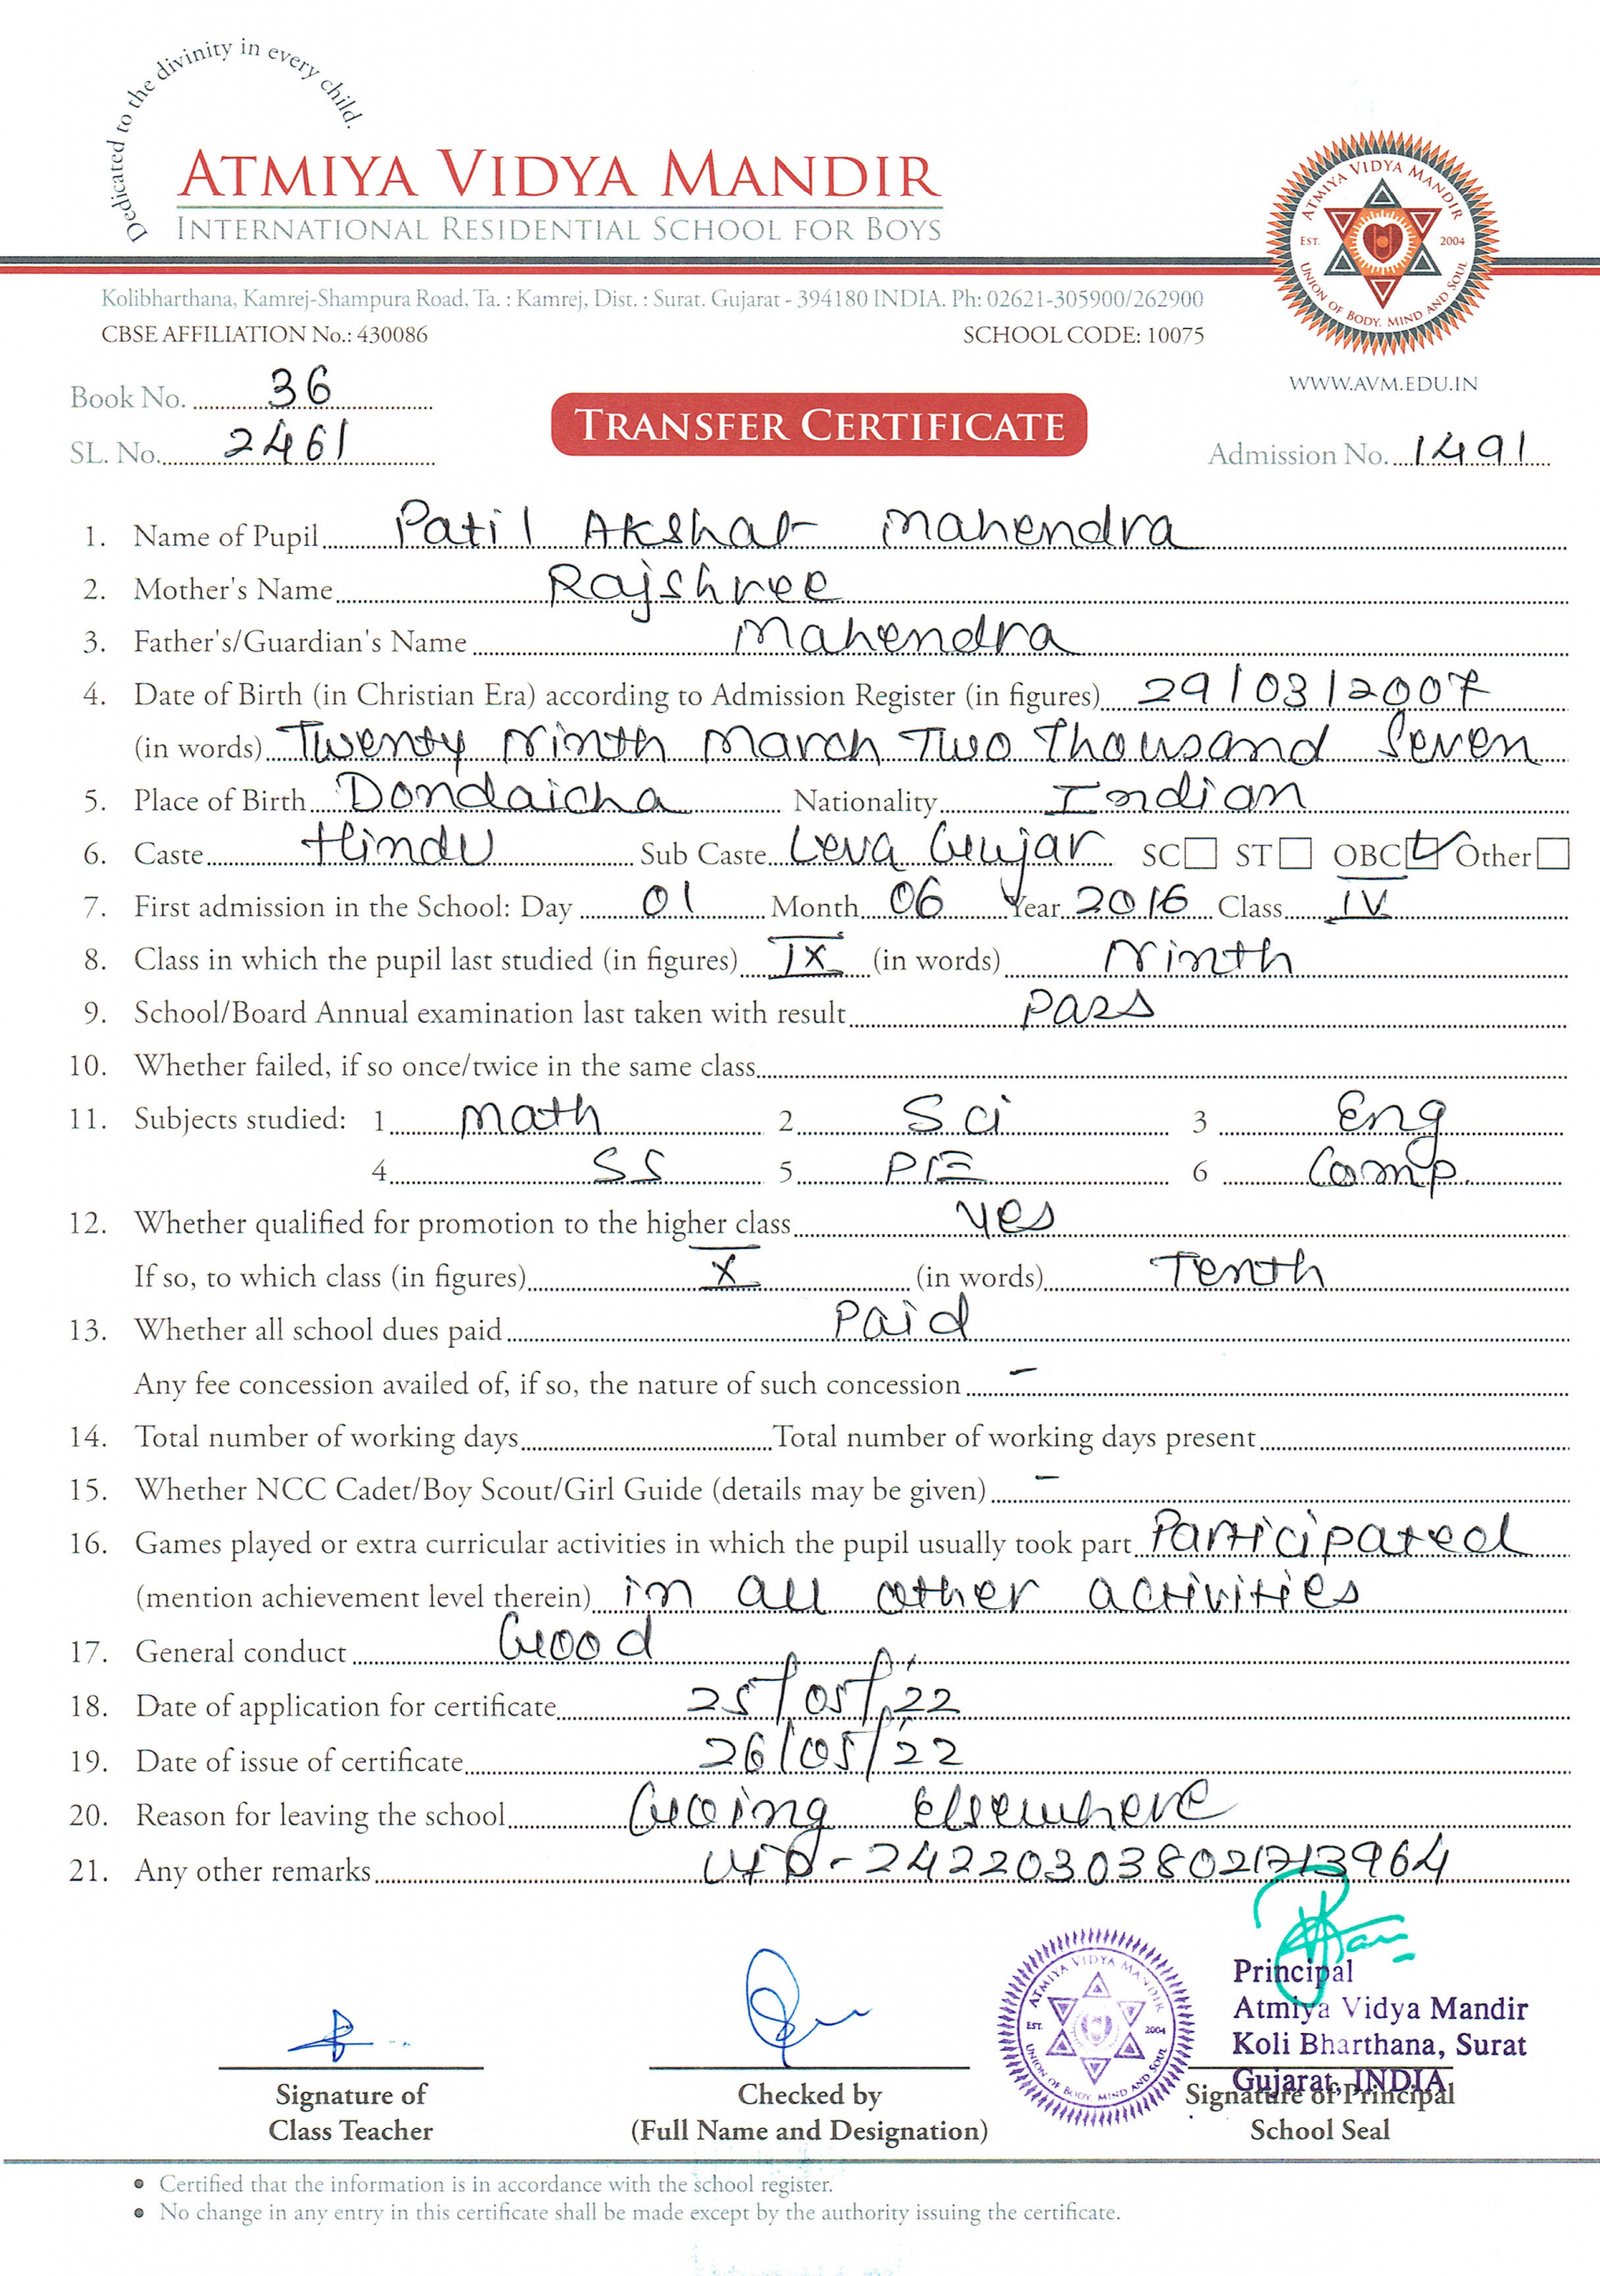 Dedicated to the divinity in every child.
ATMIYA VIDYA MANDIR
INTERNATIONAL RESIDENTIAL SCHOOL FOR BOYS
ATMIYA VIDYA MANDIR
EST. 2004
UNION OF BODY, MIND AND SOUL
Kolibharthana, Kamrej-Shampura Road, Ta. : Kamrej, Dist. : Surat. Gujarat - 394180 INDIA. Ph: 02621-305900/262900
CBSE AFFILIATION No.: 430086 SCHOOL CODE: 10075
WWW.AVM.EDU.IN
Book No. 36
TRANSFER CERTIFICATE
SL. No. 2461 Admission No. 1491
1. Name of Pupil Patil Akshat Mahendra
2. Mother's Name Rajshree
3. Father's/Guardian's Name Mahendra
4. Date of Birth (in Christian Era) according to Admission Register (in figures) 29/03/2007
(in words) Twenty Ninth March Two Thousand Seven
5. Place of Birth Dondaicha Nationality Indian
6. Caste Hindu Sub Caste Leva Gujar SC ST OBC Other
7. First admission in the School: Day 01 Month 06 Year 2016 Class IV
8. Class in which the pupil last studied (in figures) IX (in words) Ninth
9. School/Board Annual examination last taken with result Pass
10. Whether failed, if so once/twice in the same class
11. Subjects studied: 1 Math 2 Sci 3 Eng
4 SS 5 PIE 6 Comp.
12. Whether qualified for promotion to the higher class Yes
If so, to which class (in figures) X (in words) Tenth
13. Whether all school dues paid Paid
Any fee concession availed of, if so, the nature of such concession -
14. Total number of working days Total number of working days present
15. Whether NCC Cadet/Boy Scout/Girl Guide (details may be given) -
16. Games played or extra curricular activities in which the pupil usually took part Participated
(mention achievement level therein) in all other activities
17. General conduct Good
18. Date of application for certificate 25/05/22
19. Date of issue of certificate 26/05/22
20. Reason for leaving the school Going Elsewhere
21. Any other remarks UID-242203038021713964
ATMIYA VIDYA MANDIR
EST. 2004
UNION OF BODY, MIND AND SOUL
Principal
Atmiya Vidya Mandir
Koli Bharthana, Surat
Gujarat, INDIA
Signature of Checked by Signature of Principal
Class Teacher (Full Name and Designation) School Seal
• Certified that the information is in accordance with the school register.
• No change in any entry in this certificate shall be made except by the authority issuing the certificate.